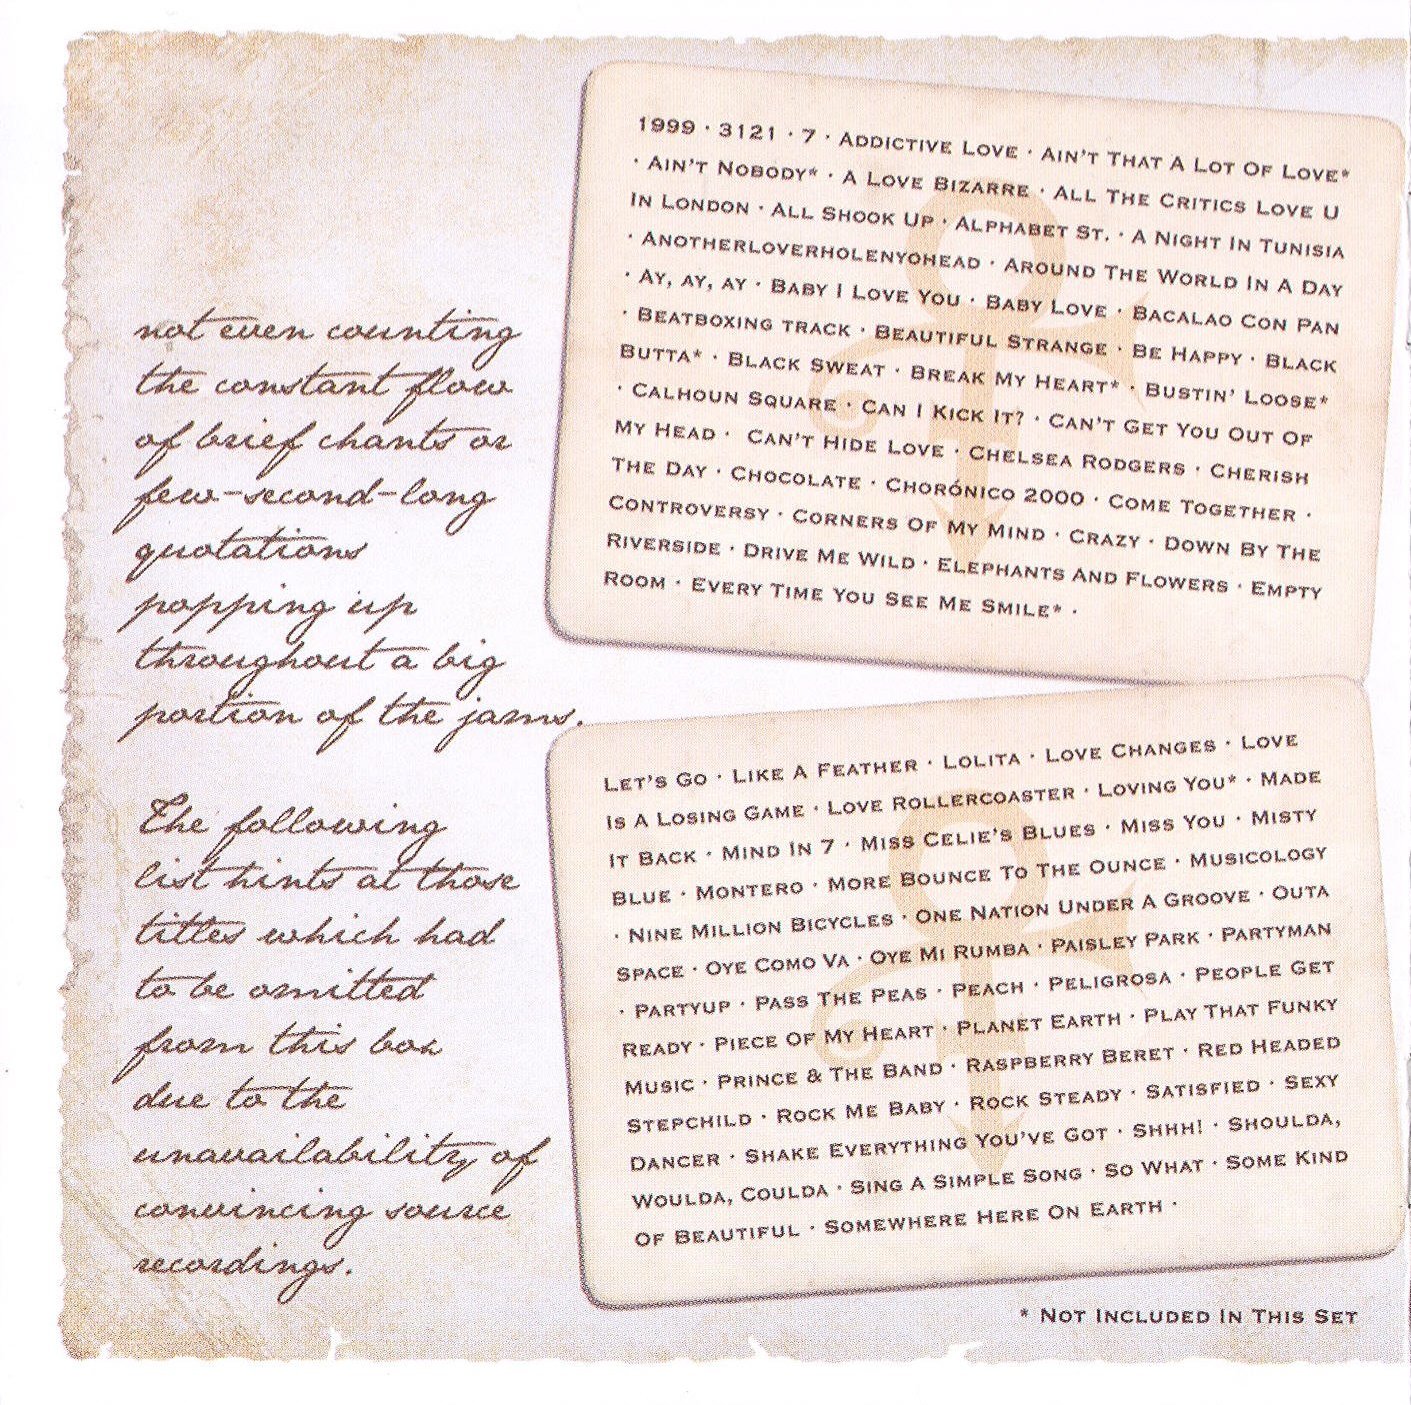 not even counting
the constant flow
of brief chants or
few-second-long
quotations
popping up
throughout a big
portion of the jams.
The following
list hints at those
titles which had
to be omitted
from this box
due to the
unavailability of
convincing source
recordings.
1999 · 3121 · 7 · Addictive Love · Ain't That A Lot Of Love*
· Ain't Nobody* · A Love Bizarre · All The Critics Love U
In London · All Shook Up · Alphabet St. · A Night In Tunisia
· Anotherloverholenyohead · Around The World In A Day
· Ay, ay, ay · Baby I Love You · Baby Love · Bacalao Con Pan
· Beatboxing track · Beautiful Strange · Be Happy · Black
Butta* · Black Sweat · Break My Heart* · Bustin' Loose*
· Calhoun Square · Can I Kick It? · Can't Get You Out Of
My Head · Can't Hide Love · Chelsea Rodgers · Cherish
The Day · Chocolate · Chorónico 2000 · Come Together ·
Controversy · Corners Of My Mind · Crazy · Down By The
Riverside · Drive Me Wild · Elephants And Flowers · Empty
Room · Every Time You See Me Smile* ·
Let's Go · Like A Feather · Lolita · Love Changes · Love
Is A Losing Game · Love Rollercoaster · Loving You* · Made
It Back · Mind In 7 · Miss Celie's Blues · Miss You · Misty
Blue · Montero · More Bounce To The Ounce · Musicology
· Nine Million Bicycles · One Nation Under A Groove · Outa
Space · Oye Como Va · Oye Mi Rumba · Paisley Park · Partyman
· Partyup · Pass The Peas · Peach · Peligrosa · People Get
Ready · Piece Of My Heart · Planet Earth · Play That Funky
Music · Prince & The Band · Raspberry Beret · Red Headed
Stepchild · Rock Me Baby · Rock Steady · Satisfied · Sexy
Dancer · Shake Everything You've Got · Shhh! · Shoulda,
Woulda, Coulda · Sing A Simple Song · So What · Some Kind
Of Beautiful · Somewhere Here On Earth ·
* Not Included In This Set